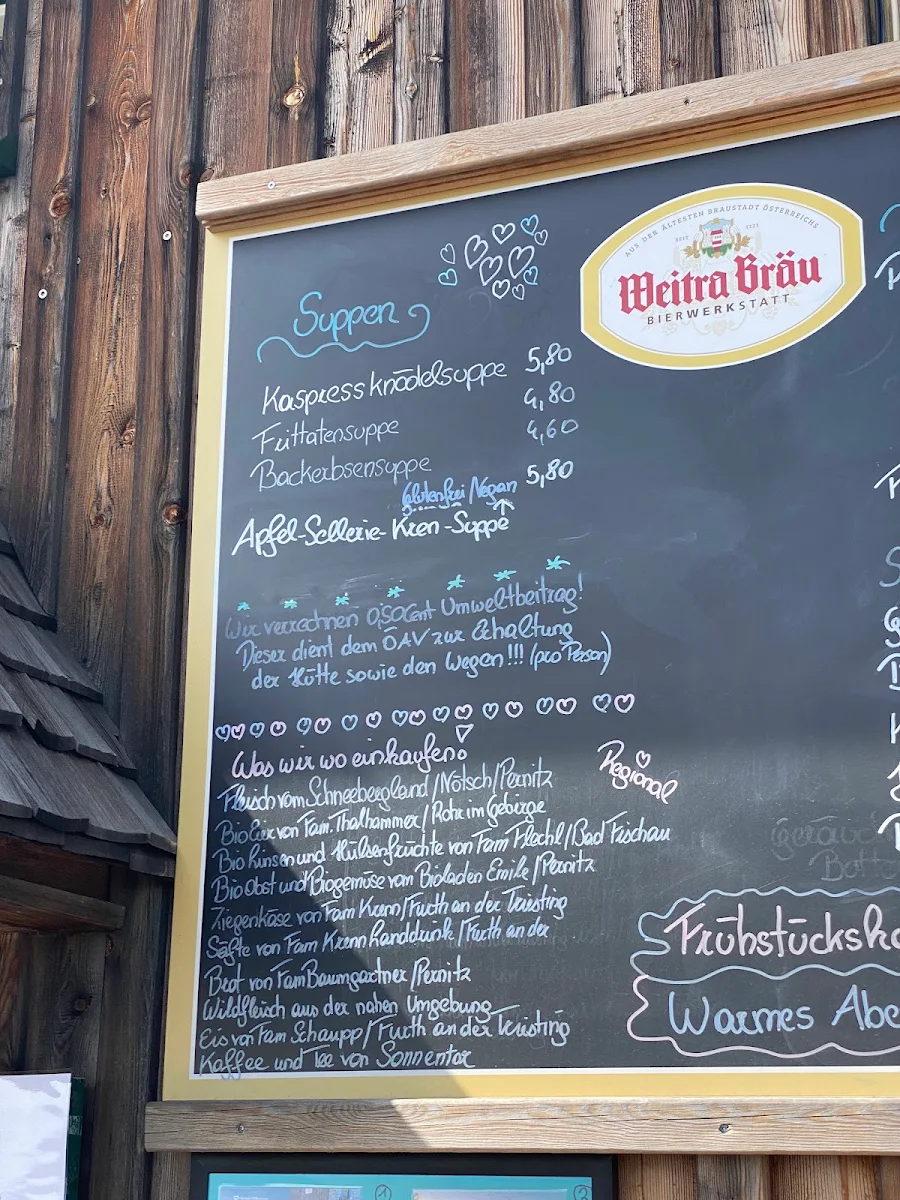 Suppen
Kaspressknödelsuppe 5,80
Frittatensuppe 4,80
Backerbsensuppe 4,60
Glutenfrei/Vegan
Apfel-Sellerie-Kren-Suppe 5,80
Wir verrechnen 0,50Cent Umweltbeitrag!
Dieser dient dem ÖAV zur Erhaltung
der Hütte sowie den Wegen!!! (pro Person)
Was wir wo einkaufen!
Regional
Fleisch vom Schneebergland/Nötsch/Pernitz
Bio Eier von Fam. Thalhammer/Rohr im Gebirge
Bio Linsen und Hülsenfrüchte von Fam Flechl/Bad Fischau
Bio Obst und Biogemüse vom Bioladen Emile/Pernitz
Ziegenkäse von Fam Krenn/Furth an der Triesting
Säfte von Fam Krenn Landdunk/Furth an der
Brot von Fam Baumgartner/Pernitz
Wildfleisch aus der nahen Umgebung
Eis von Fam Schaupp/Furth an der Triesting
Kaffee und Tee von Sonnentor
AUS DER ÄLTESTEN BRAUSTADT ÖSTERREICHS
SEIT 1321
Weitra Bräu
BIERWERKSTATT
Frühstückska
Warmes Abe